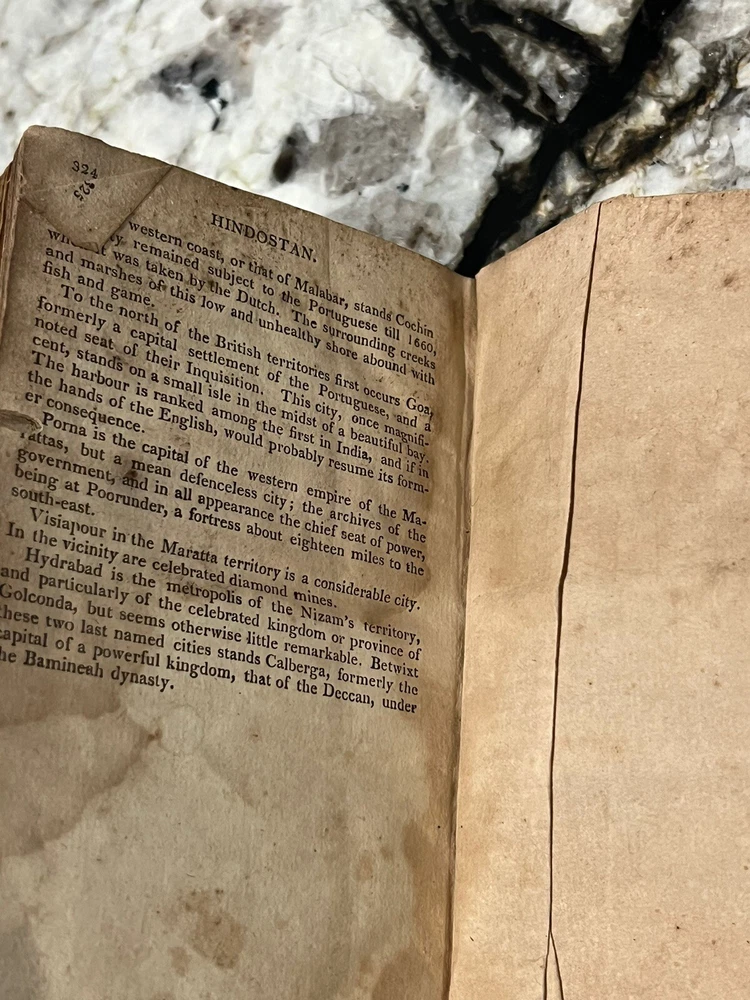 324
HINDOSTAN.
western coast, or that of Malabar, stands Cochin
remained subject to the Portuguese till 1660,
it was taken by the Dutch. The surrounding creeks
and marshes of this low and unhealthy shore abound with
fish and game.
To the north of the British territories first occurs Goa,
formerly a capital settlement of the Portuguese, and a
noted seat of their Inquisition. This city, once magnifi-
cent, stands on a small isle in the midst of a beautiful bay.
The harbour is ranked among the first in India, and if in
the hands of the English, would probably resume its form-
er consequence.
Porna is the capital of the western empire of the Ma-
rattas, but a mean defenceless city; the archives of the
government, and in all appearance the chief seat of power,
being at Poorunder, a fortress about eighteen miles to the
south-east.
Visiapour in the Maratta territory is a considerable city.
In the vicinity are celebrated diamond mines.
Hydrabad is the metropolis of the Nizam's territory,
and particularly of the celebrated kingdom or province of
Golconda, but seems otherwise little remarkable. Betwixt
these two last named cities stands Calberga, formerly the
capital of a powerful kingdom, that of the Deccan, under
he Bamineah dynasty.